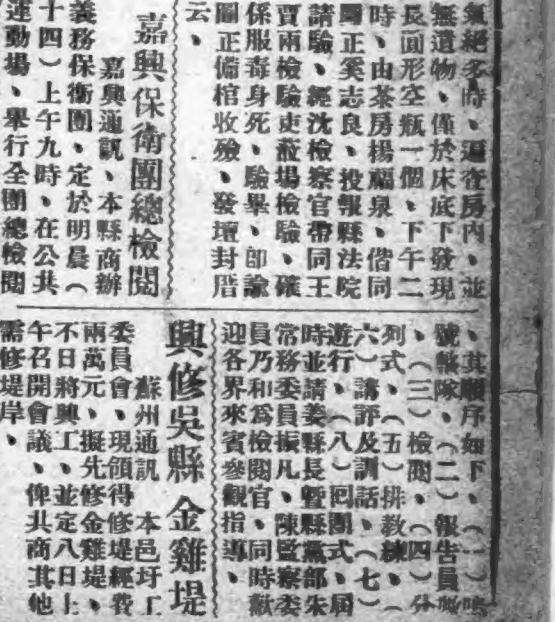 氣絕多時、遍查房內、並
無遺物、僅於床底下發現
長圓形空瓶一個、下午二
時、由茶房楊福泉、偕同
圖正奚志良、投報縣法院
請驗、經沈檢察官帶同王
賈兩檢驗吏蒞場檢驗、確
係服毒身死、驗畢、即諭
圖正備棺收殮、發壇封厝
云、
嘉興保衛團總檢閱
嘉興通訊、本縣商辦
義務保衛團、定於明晨（
十四）上午九時、在公共
運動場、舉行全團總檢閱
、其順序如下、（一）鳴
號整隊、（二）報告員
、（三）檢閱、（四）分
列式、（五）排教練、（
六）講評及訓話、（七）
遊行、（八）回團式、屆
時並請姜縣長暨縣黨部朱
常務委員振凡、陳監察委
員乃和爲檢閱官、同時歡
迎各界來賓參觀指導、
興修吳縣金雞堤
蘇州通訊 本邑圩工
委員會、現領得修堤經費
兩萬元、擬先修金雞堤、
不日將興工、並定八日上
午召開會議、俾共商其他
需修堤岸、